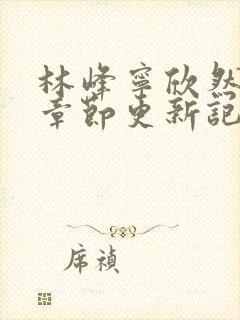 林峰寧欣然
章節更新記
席禎